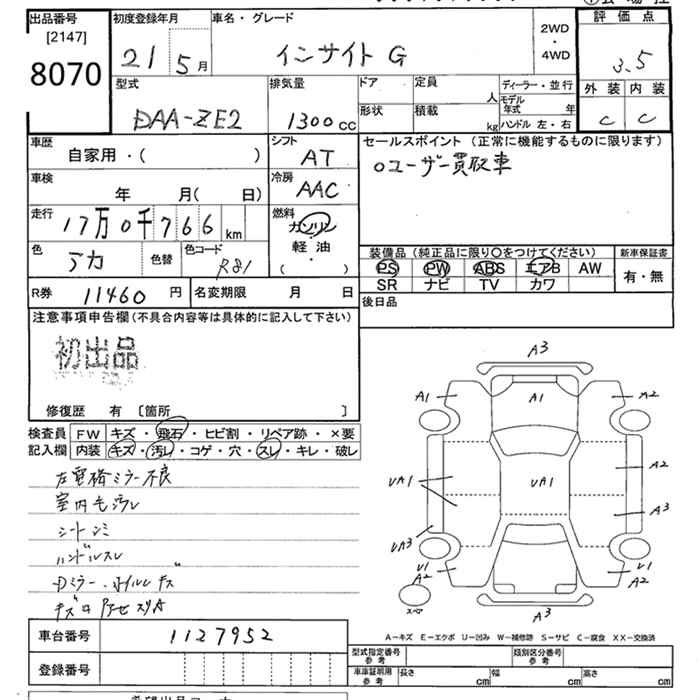 出品番号
[2147]
8070
初度登録年月
21 5月
車名・グレード
インサイト G
2WD
・
4WD
評価点
3.5
外装 内装
C C
型式
DAA-ZE2
排気量
1300cc
ドア 定員 人
形状 積載 kg
ディーラー・並行
モデル年式 年
ハンドル 左・右
車歴
自家用・( )
シフト
AT
車検
年 月( 日)
冷房
AAC
走行
17万0千766km
燃料
ガソリン
軽油・
( )
色
アカ
色替
色コード
R81
R券 11460円
名変期限 月 日
セールスポイント(正常に機能するものに限ります)
○ユーザー買取車
装備品(純正品に限り○をつけてください)
PS PW ABS エアB AW
SR ナビ TV カワ
新車保証書
有・無
後日品
注意事項申告欄(不具合内容等は具体的に記入して下さい)
初出品
修復歴 有 〔箇所 〕
検査員
記入欄
FW キズ・飛石・ヒビ割・リペア跡・×要
内装 キズ・汚レ・コゲ・穴・スレ・キレ・破レ
左電格ミラー不良
シートシミ
ハンドルスレ
A3
A1
A1
A2
UA1
UA1
A2
A3
UA3
U1
A2
U1
A2
A3
スペア
A-キズ E-エクボ U-凹み W-補修跡 S-サビ C-腐食 XX-交換済
車台番号 1127952
登録番号
型式指定番号
参考
類別区分番号
参考
車庫証明用
参考
長さ cm
幅 cm
高さ cm